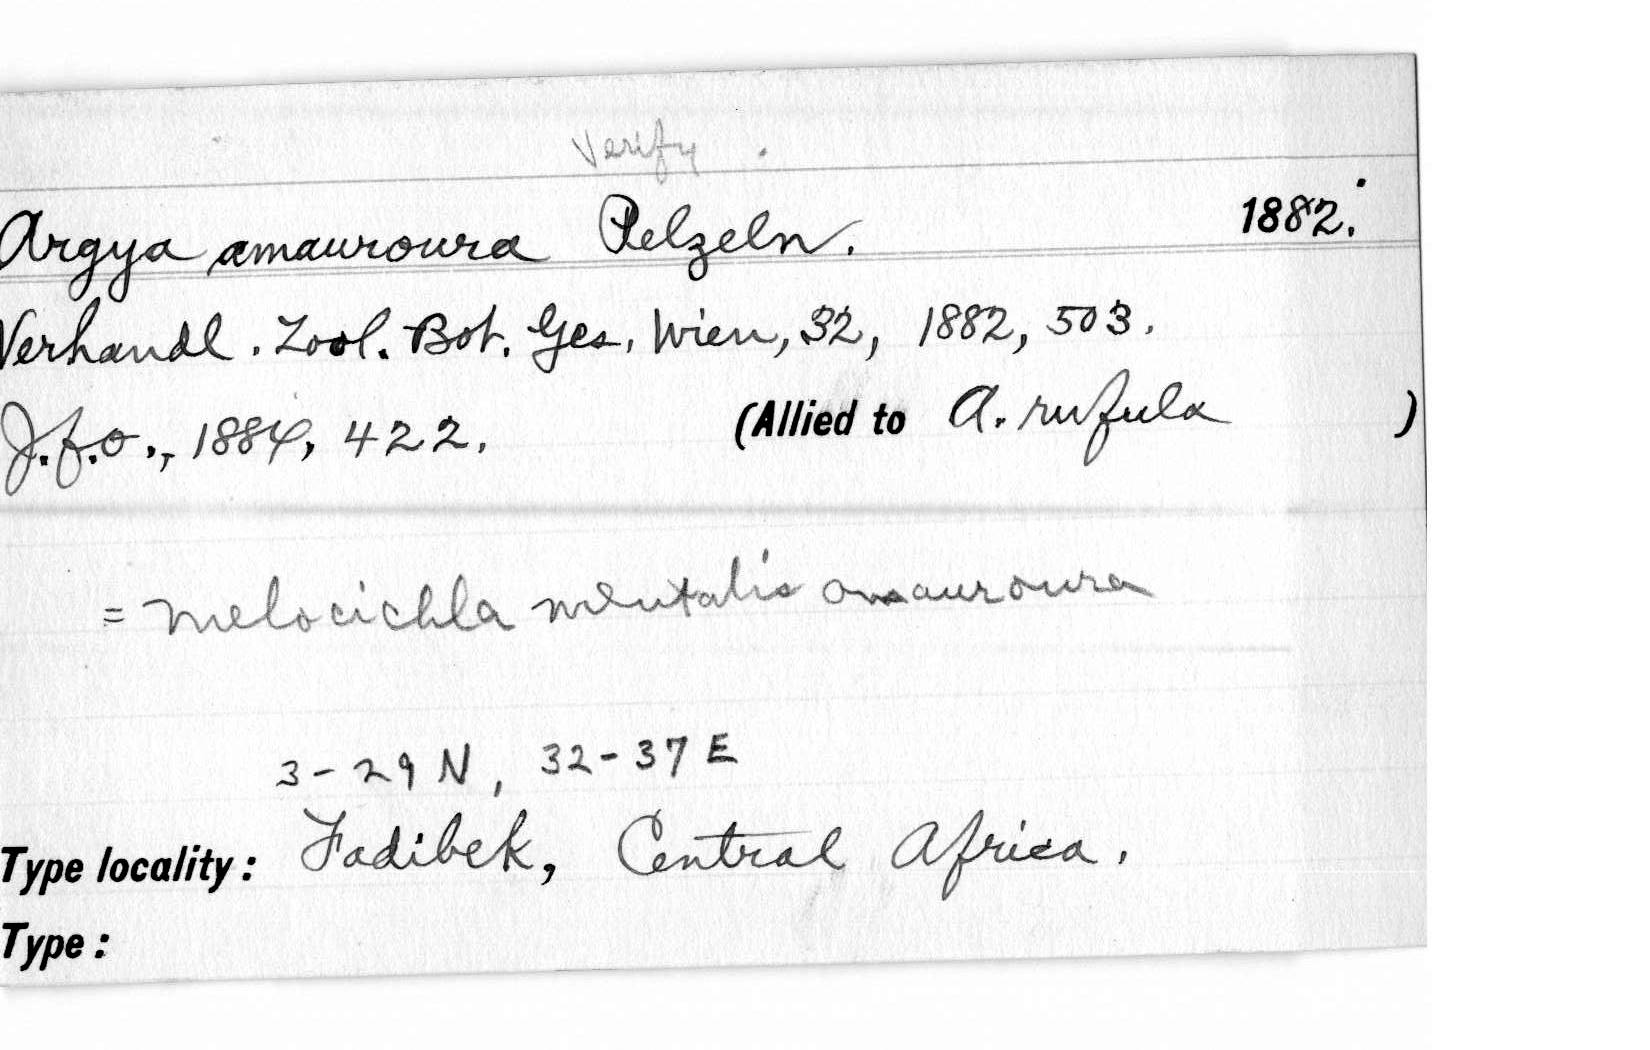 Verify.
Argya amauroura Pelzeln. 1882.
Verhandl. Zool. Bot. Ges. Wien, 32, 1882, 503.
J.f.O., 1884, 422. (Allied to A. rufula )
= Melocichla mentalis amauroura
3-29 N, 32-37 E
Type locality: Fadibek, Central Africa.
Type: